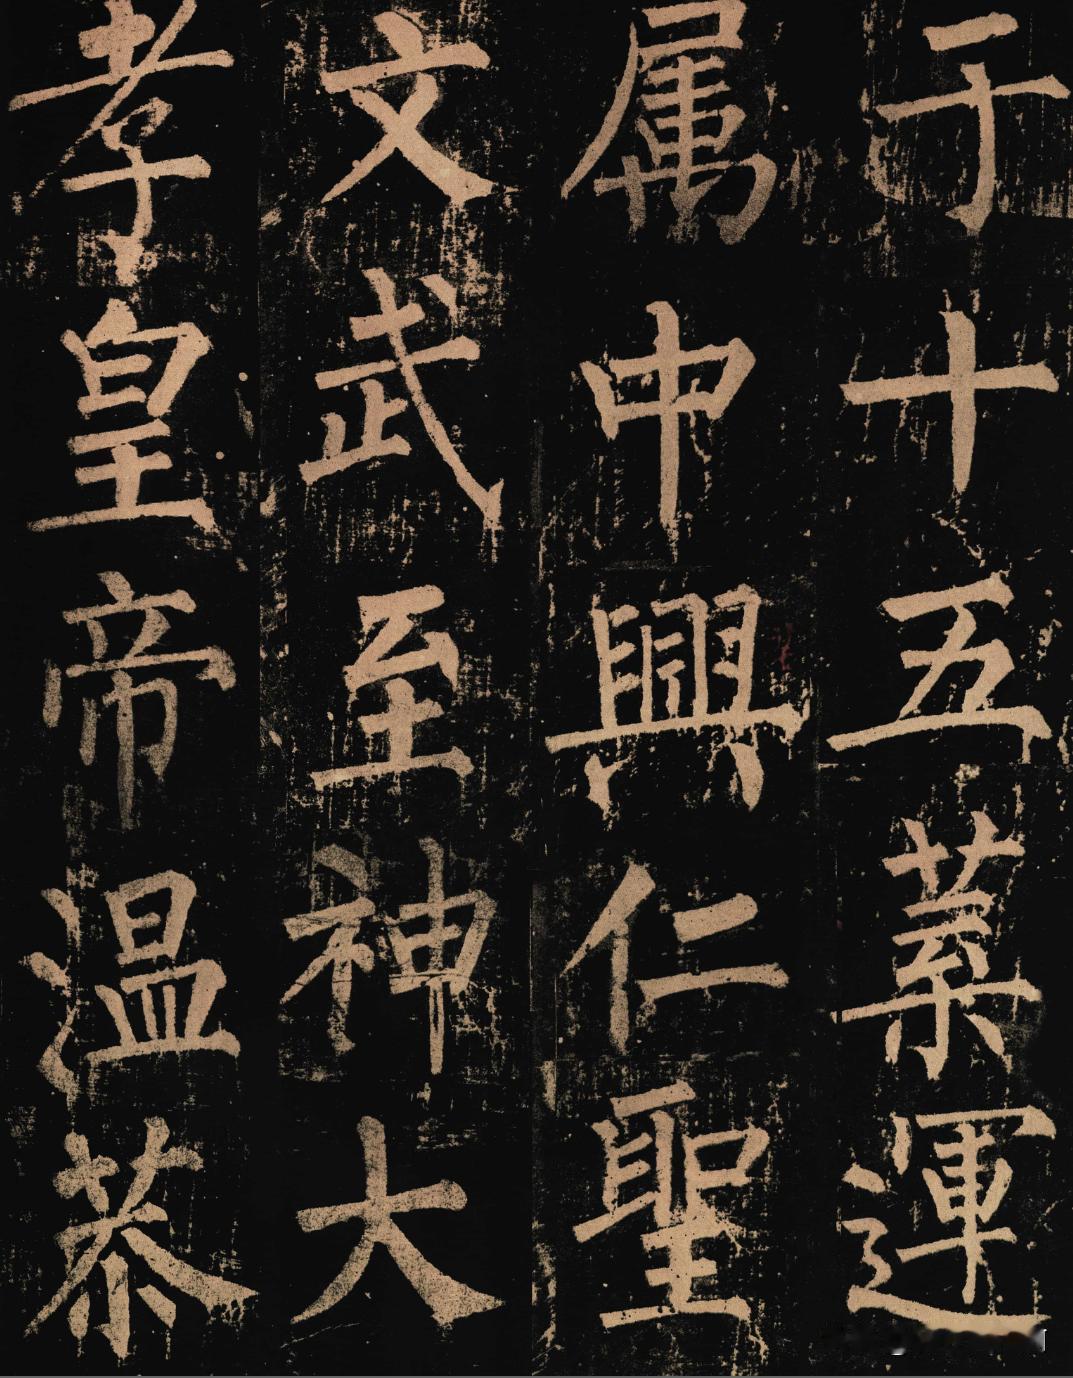 于十五葉運
属中興仁聖
文武至神大
孝皇帝温恭